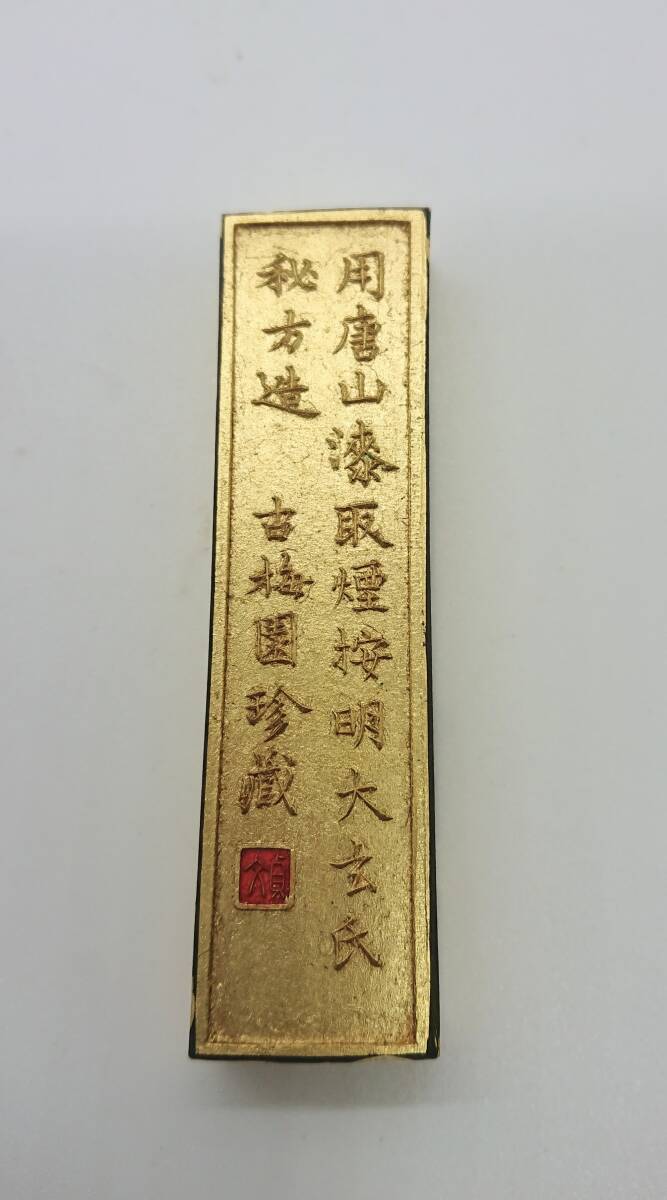 用唐山漆取煙按明大玄氏
秘方造 古梅園珍藏